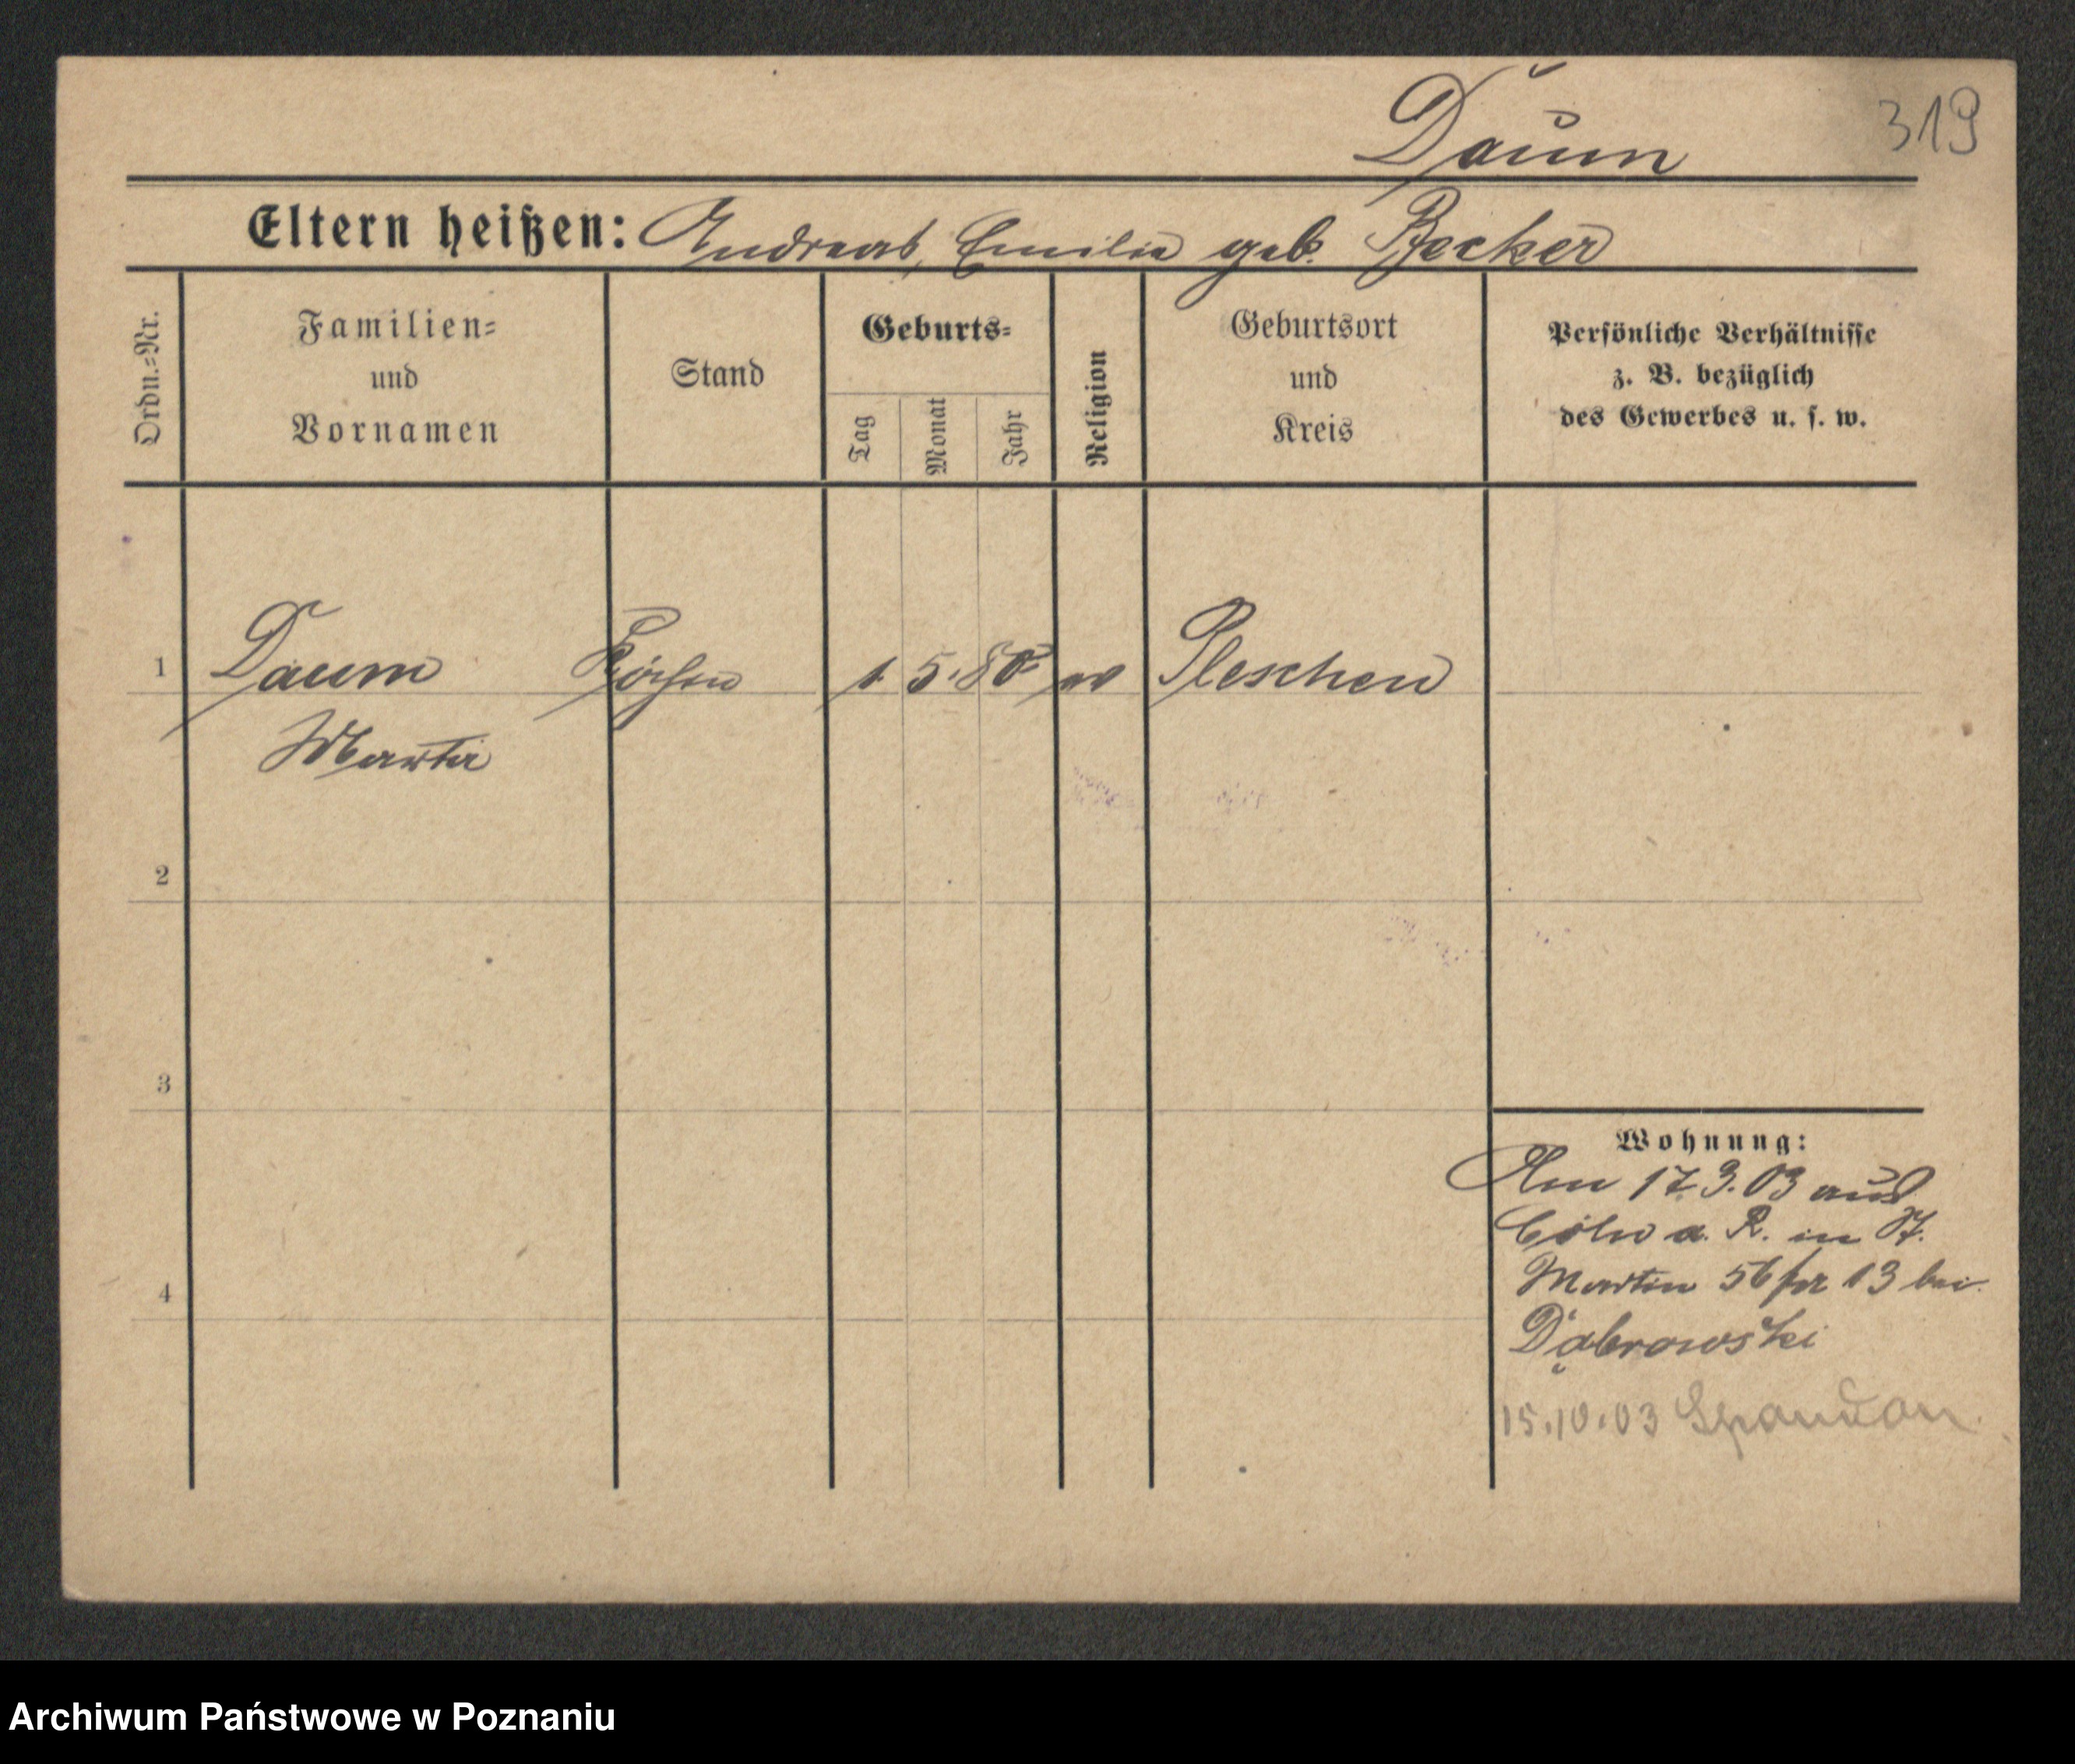 Daum
319
Eltern heißen: Andreas, Emilie geb. Becker
Ordn.=Nr.
Familien=
und
Vornamen
Stand
Geburts=
Tag
Monat
Jahr
Religion
Geburtsort
und
Kreis
Persönliche Verhältnisse
z. B. bezüglich
des Gewerbes u. s. w.
1 Daum Köchin 1. 5. 80 Pleschen
Martha
2
3
4
Wohnung:
Am 17.3.03 aus
Cöln a. R. in St.
Martin 56 ptr 13 bei
Dąbrowski
15.10.03 Spandau.
Archiwum Państwowe w Poznaniu